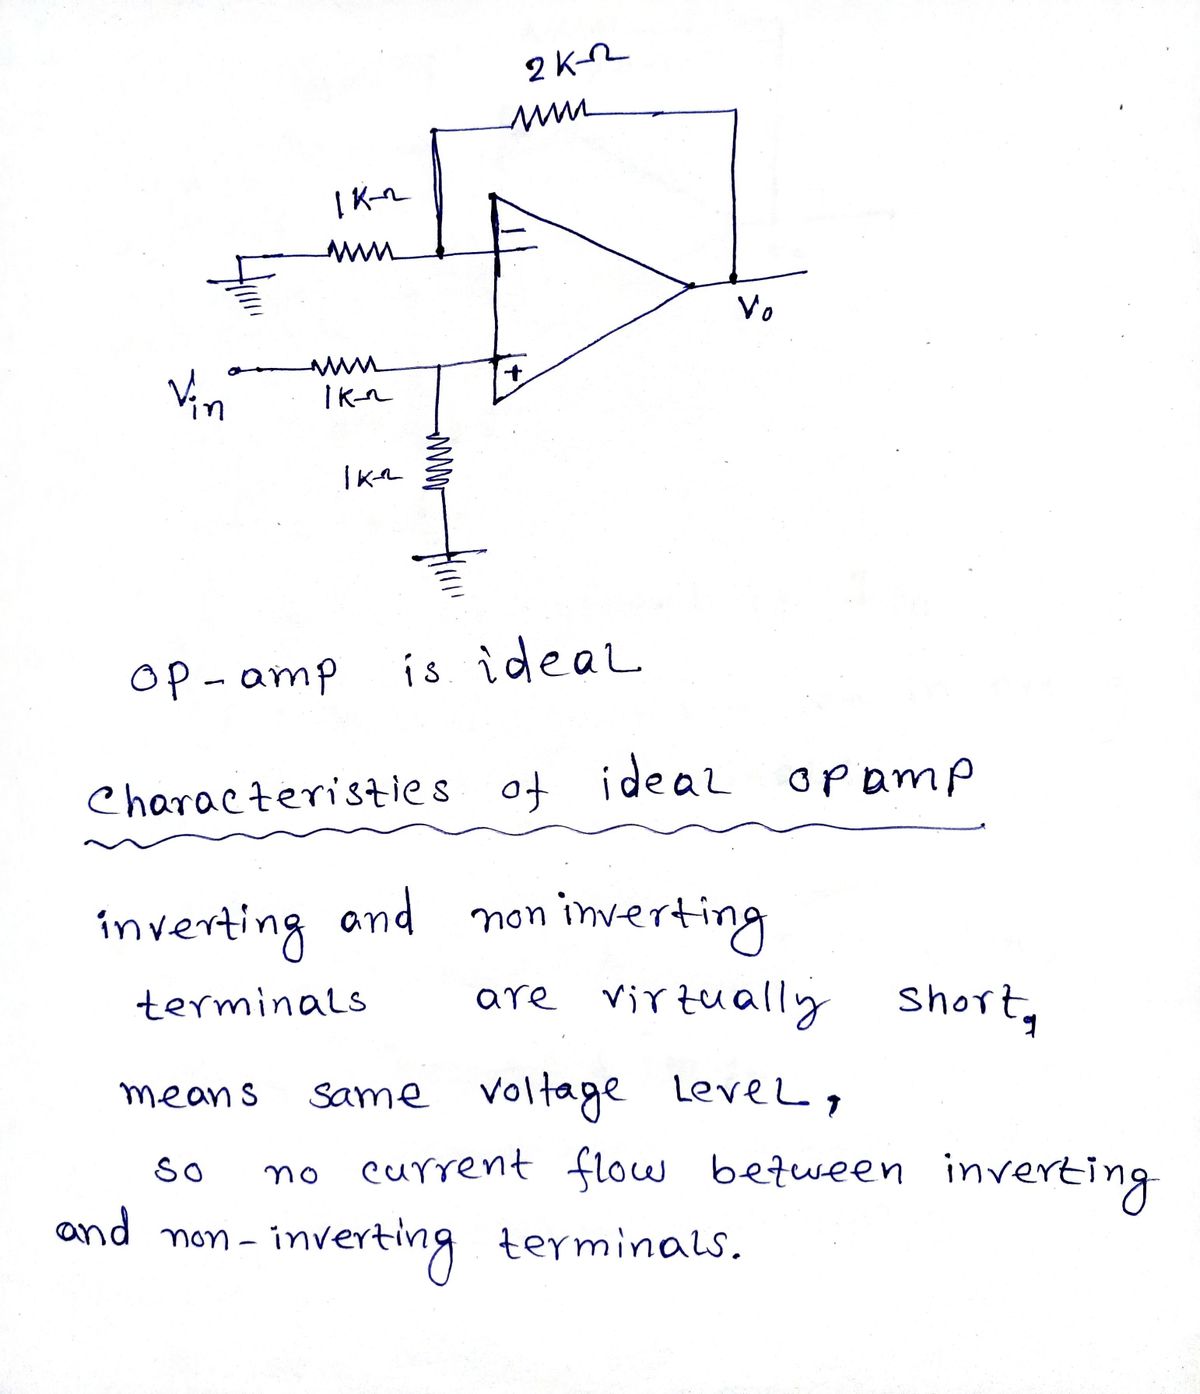 2KΩ
1KΩ
-
Vo
+
Vin
1KΩ
1KΩ
op-amp is ideal
Characteristies of ideal opamp
inverting and non inverting
terminals are virtually short,
means same voltage level,
so no current flow between inverting
and non-inverting terminals.